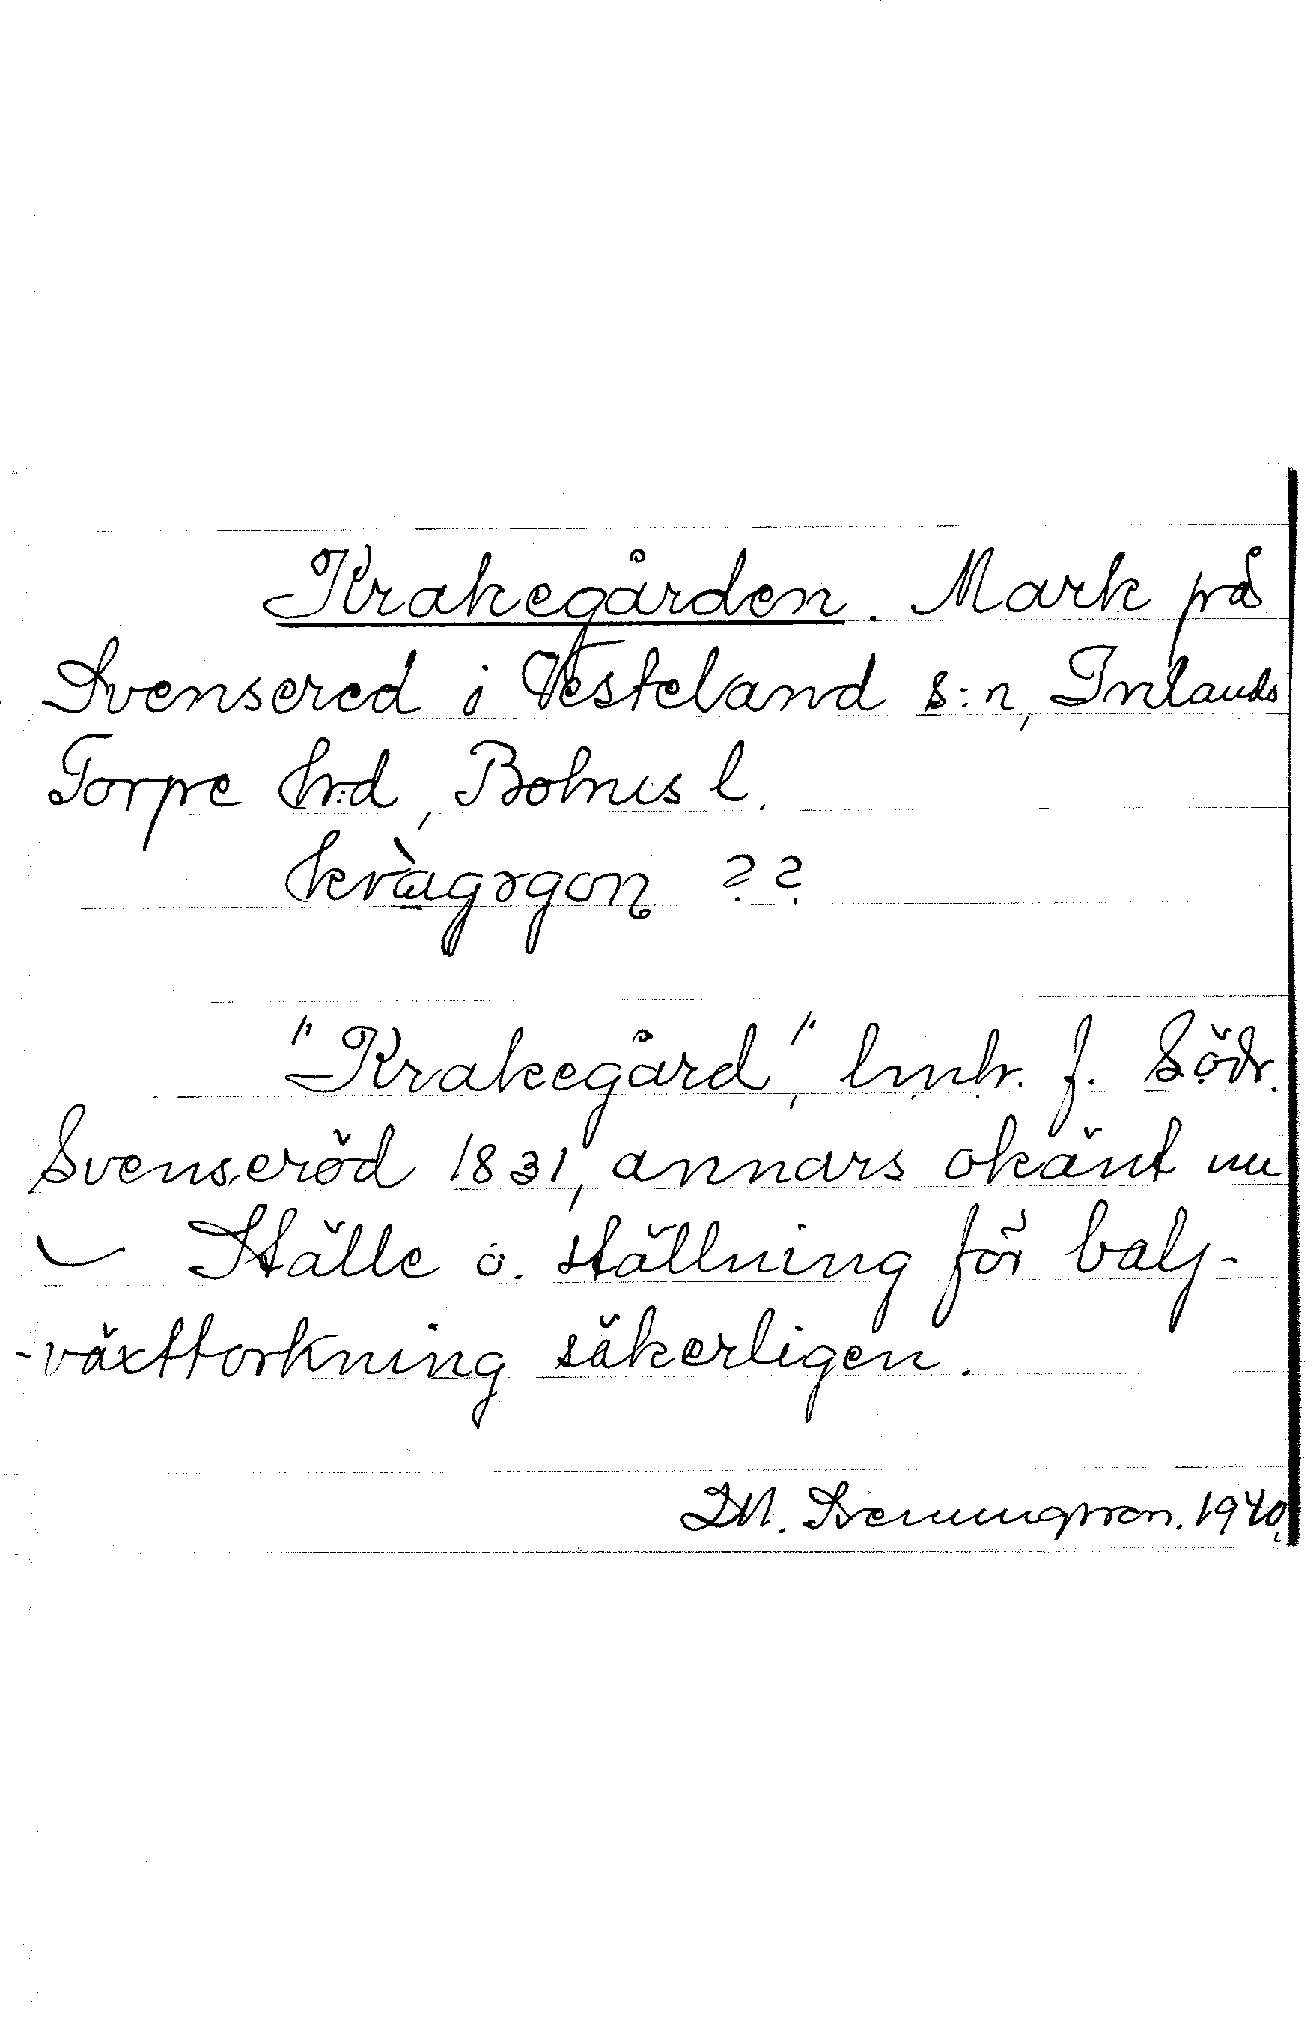 Krakegården. Mark på
Svensered i Vesterland s:n, Inlands
Torpe hrd, Bohus l.
kràgəgon ??
"Krakegård", lmhr. f. Södr.
Svenseröd 1831, annars okänt nu
Ställe o. ställning för balj-
-växttorkning säkerligen.
1940.